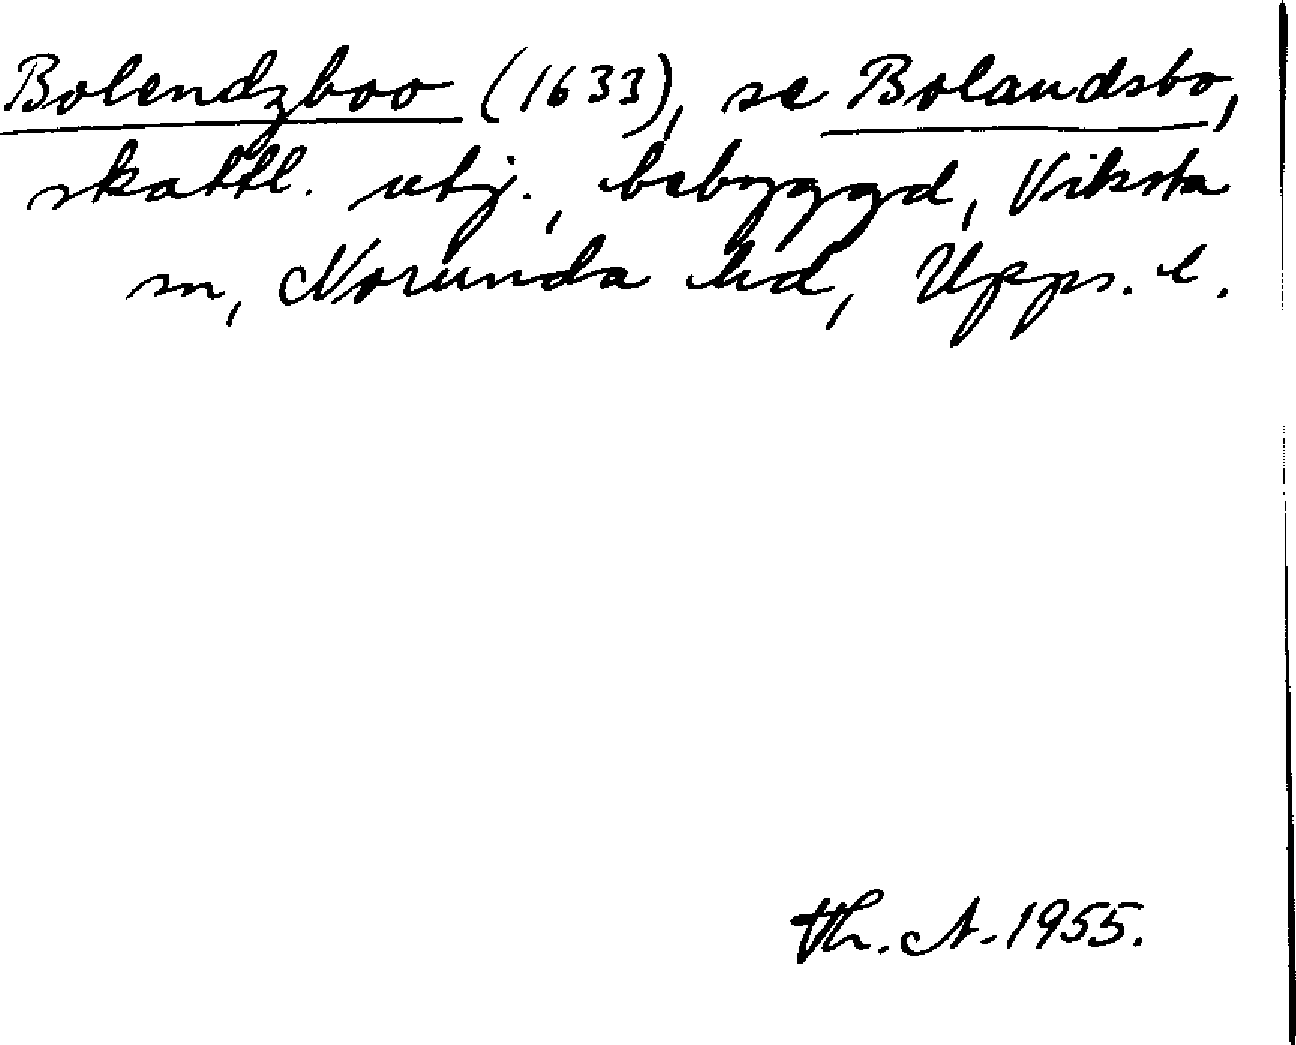 Bolendzboo (1633), se Bolandsbo,
skattl. utj., bebyggd, Viksta
sn, Norunda hd, Upps. l.
Th. A. 1955.